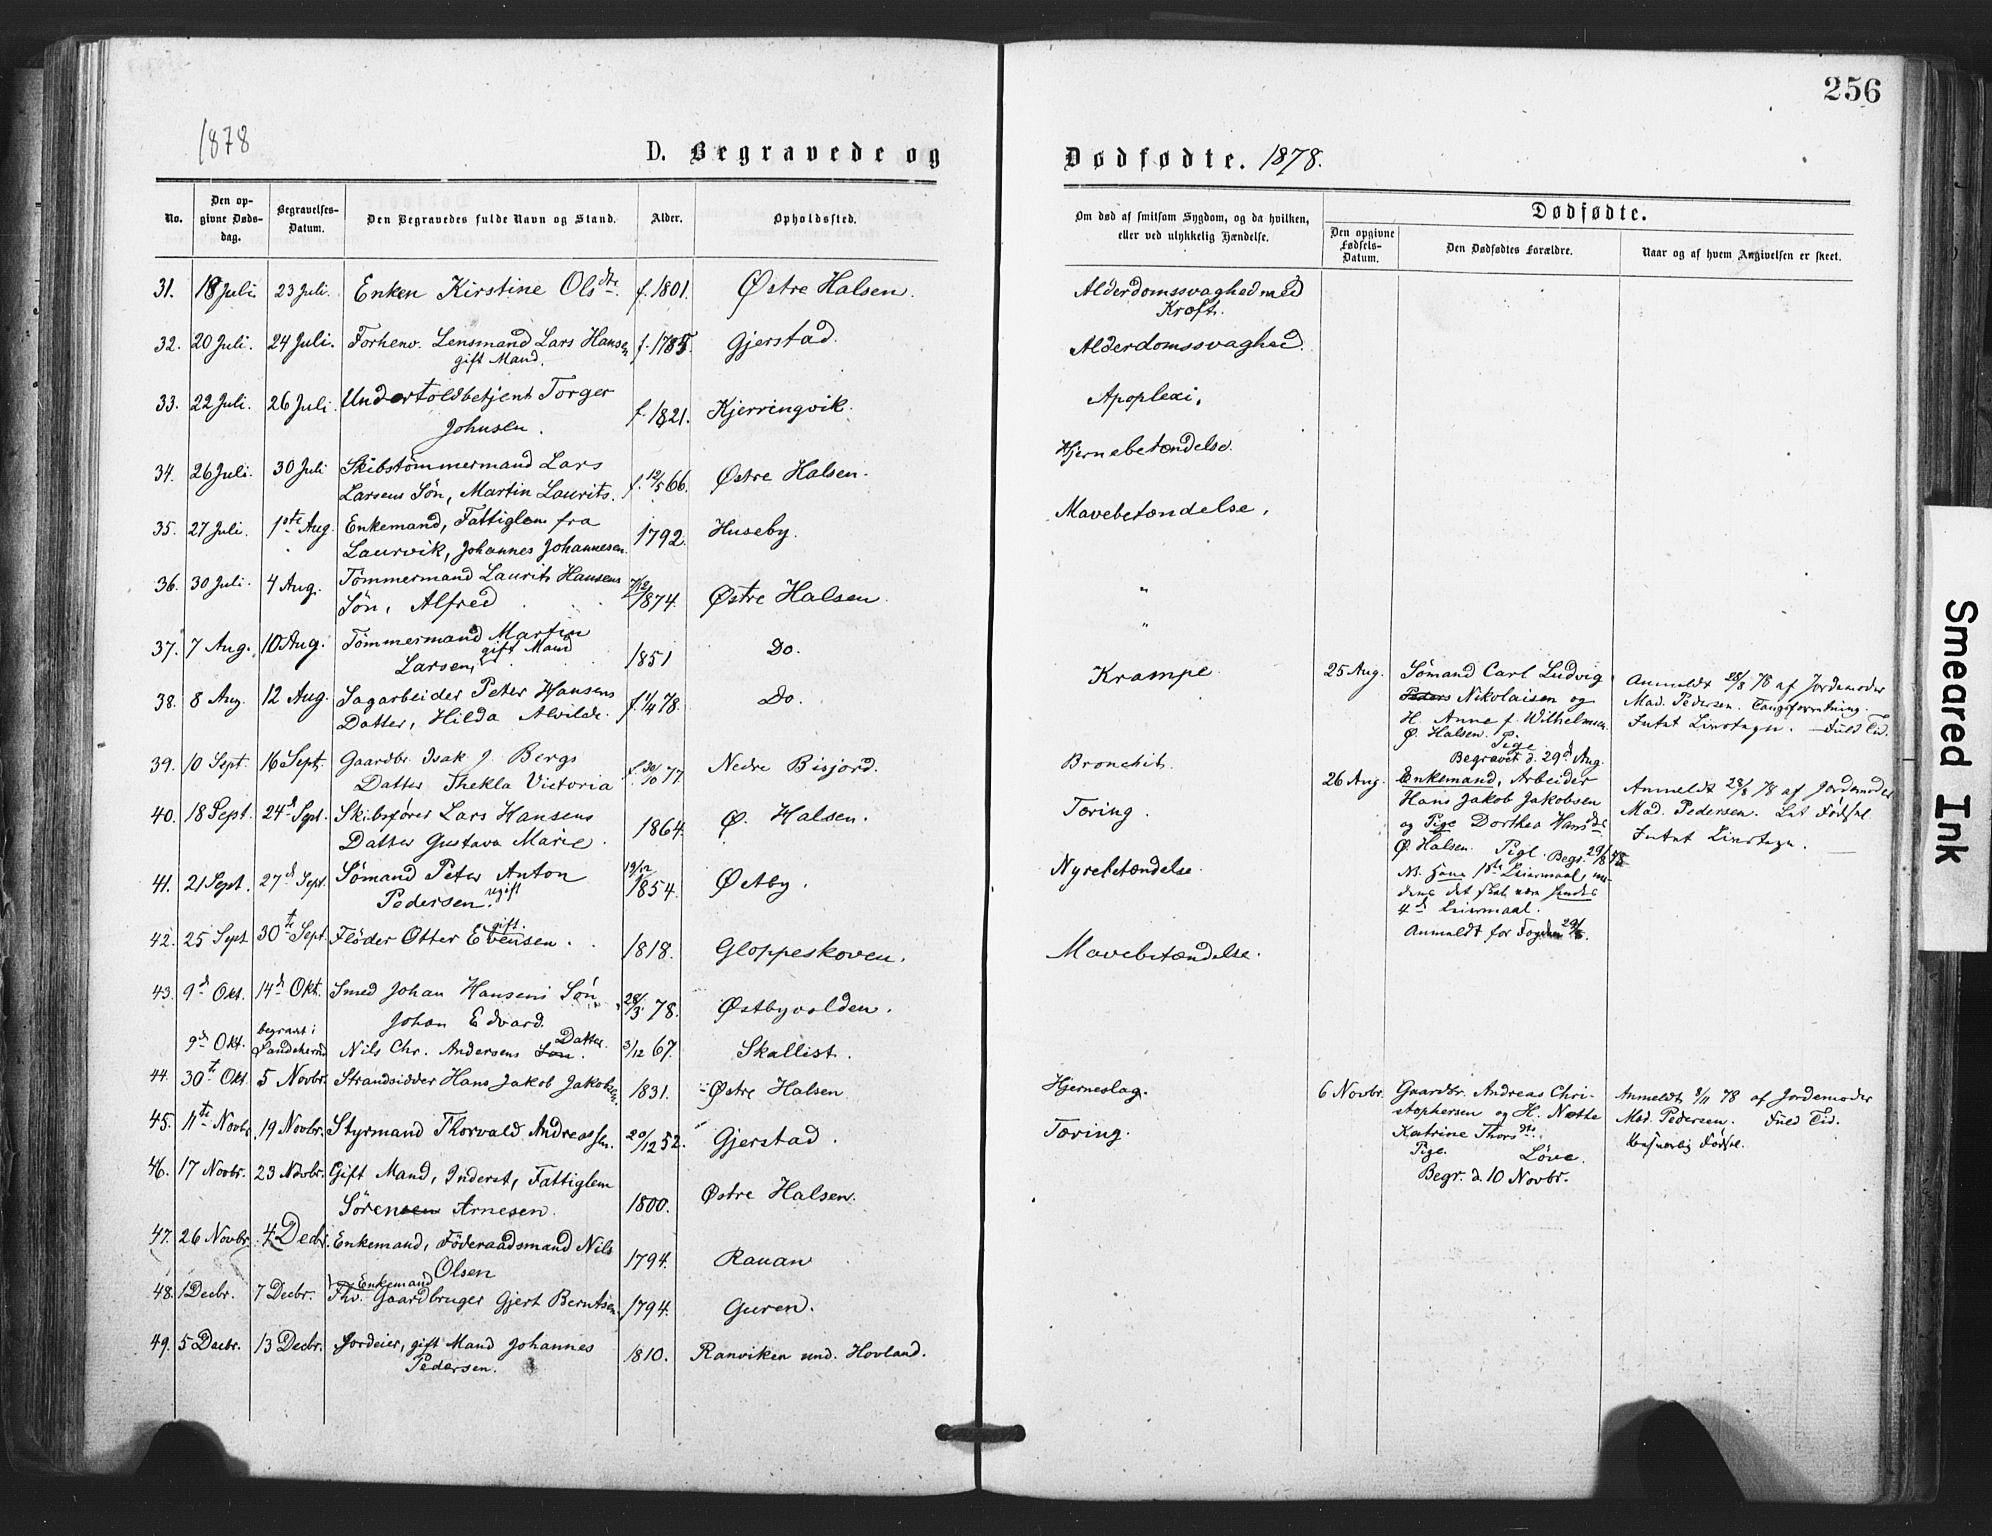 256
1878
D. Begravede og
Dødfødte. 1878.
No.
Den opgivne Dødsdag.
Begravelses-Datum.
Den Begravedes fulde Navn og Stand.
Alder.
Opholdssted.
Om død af smitsom Sygdom, og da hvilken,
eller ved ulykkelig Hændelse.
Dødfødte.
Den opgivne Fødsels-Datum.
Den Dødfødtes Forældre.
Naar og af hvem Angivelsen er skeet.
31. 18 Juli 23 Juli. Enken Kirstine Olsdtr. f. 1801. Østre Halsen.
32. 20 Juli. 24 Juli. Forhenv. Lensmand Lars Hansen f. 1785. Gjerstad.
gift Mand.
33. 22 Juli. 26 Juli. Undertoldbetjent Torger
Johnsen. f. 1821. Kjerringvik.
34. 26 Juli. 30 Juli Skibstömmermand Lars
Larsens Sön, Martin Laurits. f. 12/5 66. Østre Halsen.
35. 27 Juli. 1ste Aug. Enkemand, Fattiglem fra
Laurvik, Johannes Johannesen. 1792. Huseby.
36. 30 Juli. 4 Aug. Tömmermand Laurits Hansens
Sön, Alfred 1874. Østre Halsen.
37. 7 Aug. 10 Aug. Tömmermand Martin
Larsen, gift Mand 1851 Do.
38. 8 Aug. 12 Aug. Sagarbeider Peter Hansens
Datter, Hilda Alvilde. f. 1/4 78. Do.
39. 10 Sept. 16 Sept. Gaardbr. Isak J. Bergs
Datter Thekla Victoria f. 30/10 77 Nedre Bisjord.
40. 18 Sept. 24d Sept. Skibsfører Lars Hansens
Datter Gustava Marie. 1864. Ø. Halsen.
41. 21 Sept. 27d Sept. Sømand Peter Anton
Pedersen. ugift 19/12 1854. Østby.
42. 25 Sept 30te Sept. Flöder Otter Evensen. gift. 1818. Gloppeskoven.
43. 9d Okt. 14d Okt. Smed Johan Hansens Sön
Johan Edvard. 28/3 78. Østbyvolden.
9d Okt. begravet i
Sandeherred Nils Chr. Andersens Sön. Datter. 3/12 67. Skallist.
44. 30te Okt. 5 Novbr. Strandsidder Hans Jakob Jakobsen. 1831. Østre Halsen
45. 11te Novbr. 19 Novbr. Styrmand Thorvald Andreassen. 20/12 52. Gjerstad.
46. 17 Novbr. 23 Novbr. Gift Mand, Inderst, Fattiglem
Sörensen Arnesen. 1800. Østre Halsen.
47. 26 Novbr. 4 Decbr. Enkemand, Föderaadsmand Nils
Olsen 1794. Rauan
48. 1 Decbr. 7 Decbr. Fhv. Enkemand Gaardbruger Gjert Berntsen. 1794. Guren.
49. 5 Decbr. 13 Decbr. Jordeier, gift Mand Johannes
Pedersen. 1810. Ranviken und. Hovland.
Alderdomssvaghed med
Kræft.
Alderdomssvaghed.
Apoplexi.
Hjernebetændelse.
Mavebetændelse.
"
"
Krampe.
Bronchit.
Tæring.
Nyrebetændelse.
Mavebetændelse.
Hjerneslag.
Tæring.
25 Aug. Sömand Carl Ludvig
Peders Nikolaisen og
H. Anne f. Wilhelmsen
Ø. Halsen.
Pige.
Begravet d. 29d Aug.
Anmeldt 28/8 78 af Jordemoder
Mad. Pedersen. Tangforretning.
Intet Livstegn. Fuld Tid.
26 Aug. Enkemand, Arbeider
Hans Jakob Jakobsen
og Pige Dorthea Hansdtr
Ø. Halsen. Pige. Begr. 29/8 78
NB. Hans 1ste Leiermaal,
dens det skal være hendes
4d Leiermaal.
Anmeldt for Fogden 29/8.
Anmeldt 28/8 78 af Jordemoder
Mad. Pedersen. Let Födsel
Intet Livstegn.
6 Novbr. Gaardbr. Andreas Christophersen og H. Nathe
Katrine Thorsdtr.
Pige. Löve.
Begr. d. 10 Novbr.
Anmeldt 8/11 78 af Jordemoder
Mad. Pedersen. Fuld Tid.
Födsel.
Smeared Ink